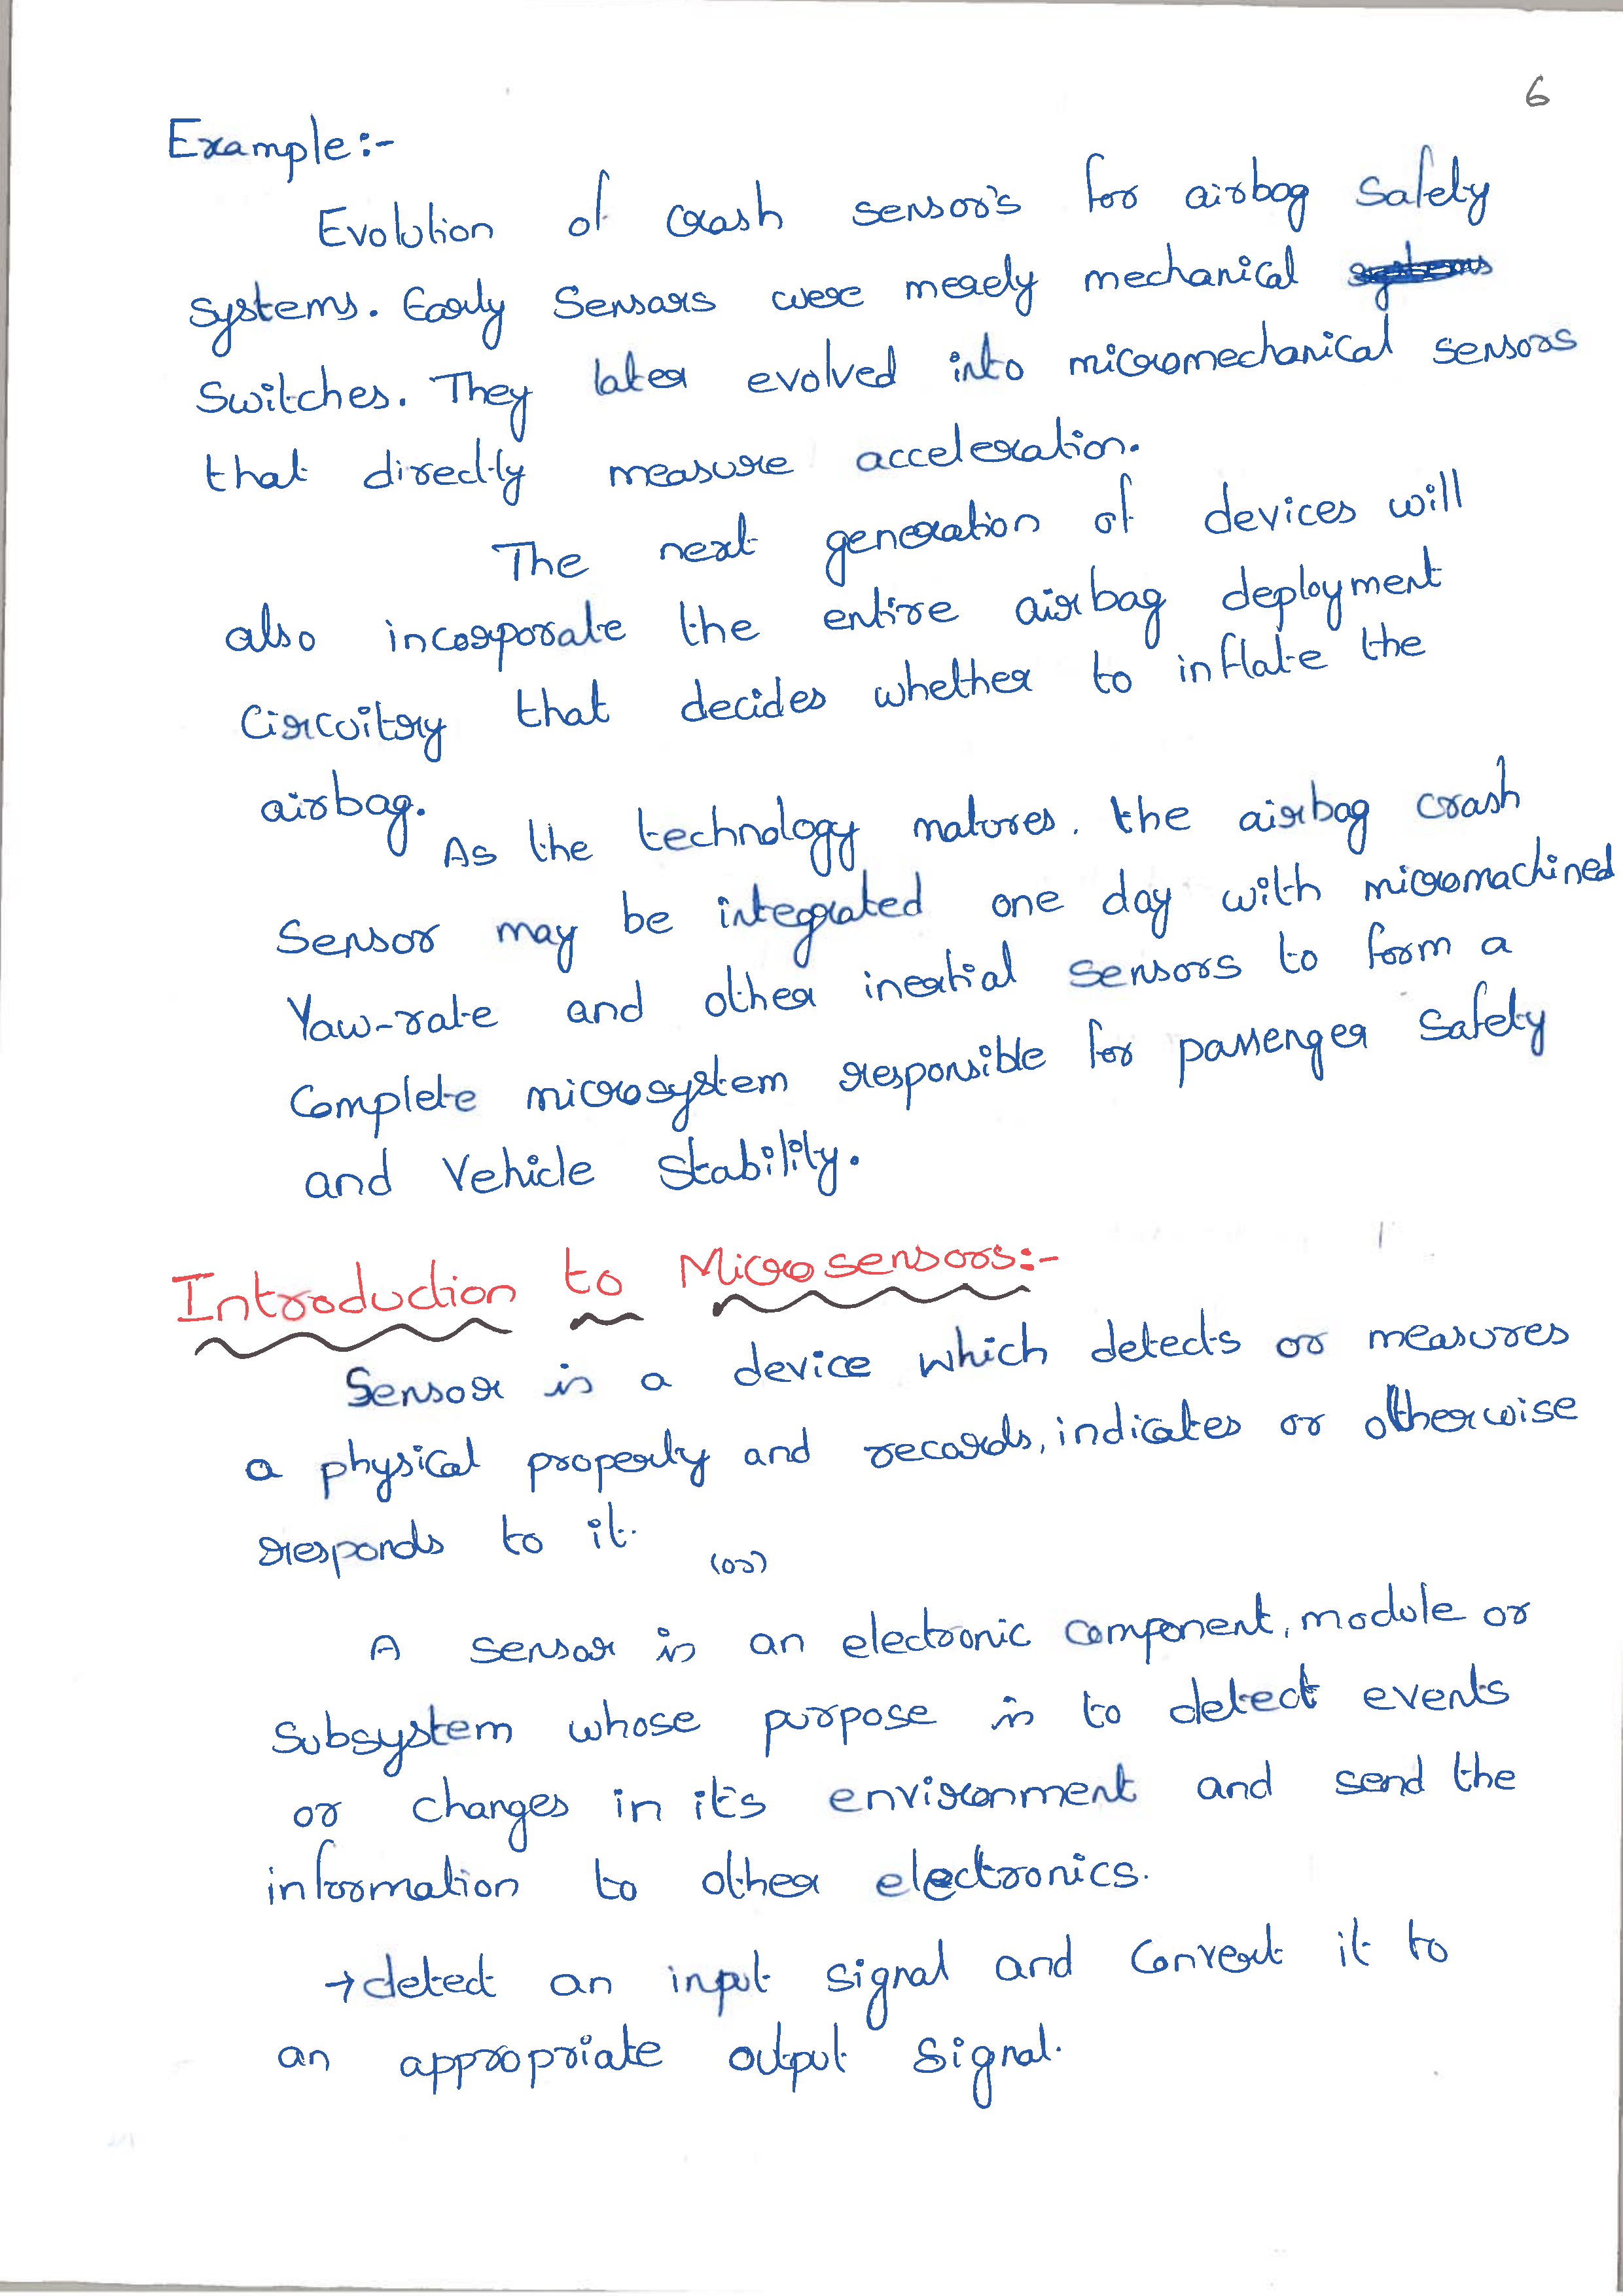 6
Example:-
Evolution of crash sensor's for airbag safety
systems. Early Sensors were merely mechanical systems
Switches. They later evolved into micromechanical sensors
that directly measure acceleration.
The next generation of devices will
also incorporate the entire airbag deployment
Circuitry that decides whether to inflate the
airbag.
As the technology matures. the airbag crash
Sensor may be integrated one day with micromachined
Yaw-rate and other inertial sensors to form a
Complete microsystem responsible for passenger safety
and Vehicle stability.
Introduction to Microsensors:-
Sensor is a device which detects or measures
a physical property and records, indicates or otherwise
responds to it.
(or)
A sensor is an electronic component, module or
Subsystem whose purpose is to detect events
or changes in it's environment and send the
information to other electronics.
→ detect an input signal and Convert it to
an appropriate output signal.